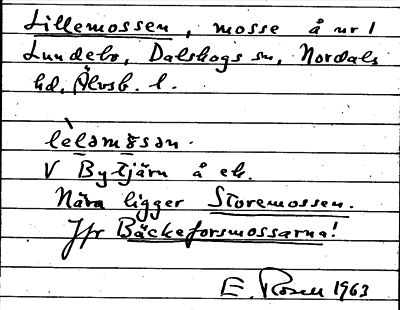 Lillemossen, mosse å nr 1
Lundebo, Dalskogs sn, Nordals
hd, Älvsb. l.
lèlamɷsan.
V Bytjärn å ek.
Nära ligger Storemossen.
Jfr Bäckeforsmossarna!
E. Rosell 1963